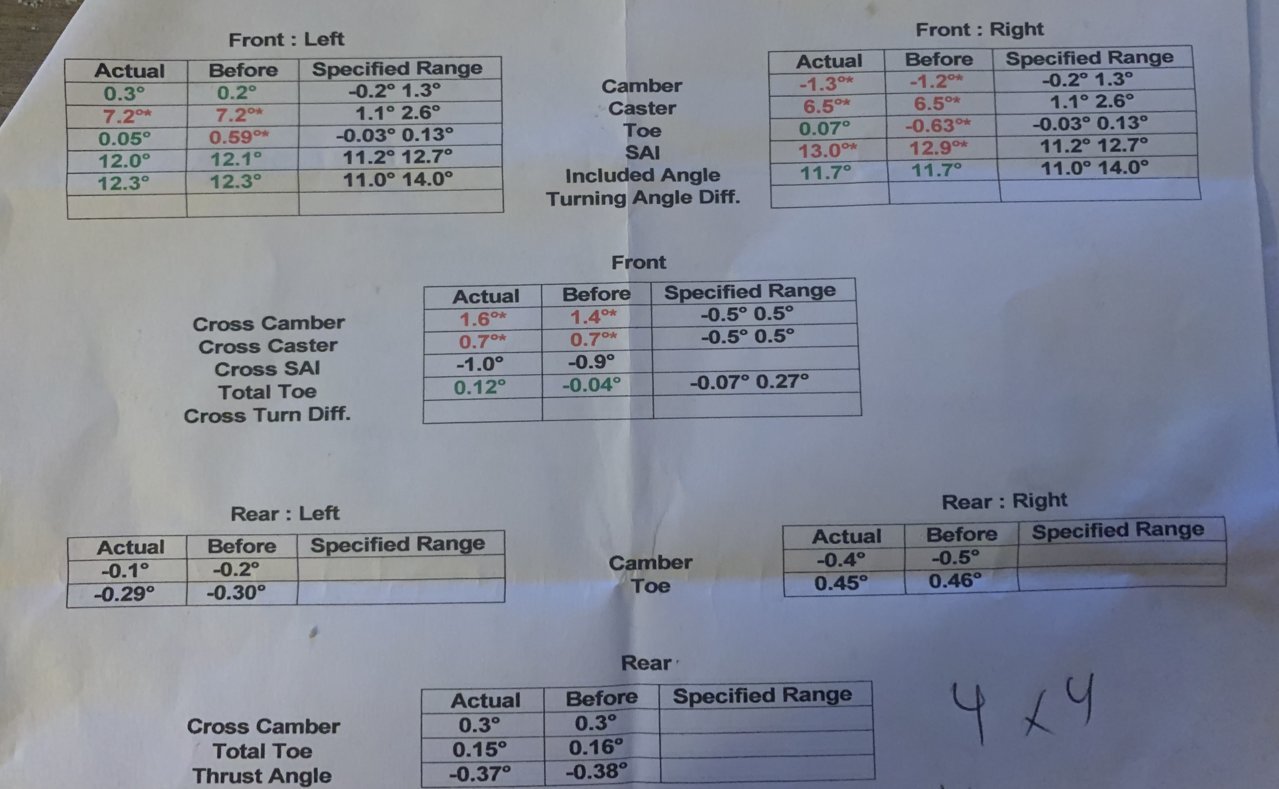 Front : Left
Front : Right
Actual Before Specified Range
Actual Before Specified Range
0.3° 0.2° -0.2° 1.3° Camber -1.3°* -1.2°* -0.2° 1.3°
7.2°* 7.2°* 1.1° 2.6° Caster 6.5°* 6.5°* 1.1° 2.6°
0.05° 0.59°* -0.03° 0.13° Toe 0.07° -0.63°* -0.03° 0.13°
12.0° 12.1° 11.2° 12.7° SAI 13.0°* 12.9°* 11.2° 12.7°
12.3° 12.3° 11.0° 14.0° Included Angle 11.7° 11.7° 11.0° 14.0°
Turning Angle Diff.
Front
Actual Before Specified Range
Cross Camber 1.6°* 1.4°* -0.5° 0.5°
Cross Caster 0.7°* 0.7°* -0.5° 0.5°
Cross SAI -1.0° -0.9°
Total Toe 0.12° -0.04° -0.07° 0.27°
Cross Turn Diff.
Rear : Left
Rear : Right
Actual Before Specified Range
Actual Before Specified Range
-0.1° -0.2° Camber -0.4° -0.5°
-0.29° -0.30° Toe 0.45° 0.46°
Rear
Actual Before Specified Range
Cross Camber 0.3° 0.3°
Total Toe 0.15° 0.16°
Thrust Angle -0.37° -0.38°
4 x 4